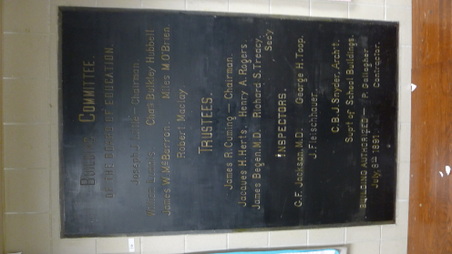 Building Committee
of the Board of Education.
Joseph Chairman.
Chas. Bulkley Hubbell
James W. McBarron. Miles M. O'Brien.
Robert Maclay
Trustees.
James R. Cuming — Chairman.
Jacques H. Herts. Henry A. Rogers
James Begen, M.D. Richard S. Treacy,
Sec'y
Inspectors.
C.F. Jackson, M.D. George H. Toop.
J. Fleischhauer.
C.B.J. Snyder, Arch't.
Sup't of School Buildings.
Building Authorized P. Gallagher
July, 8th 1891. Contractor.